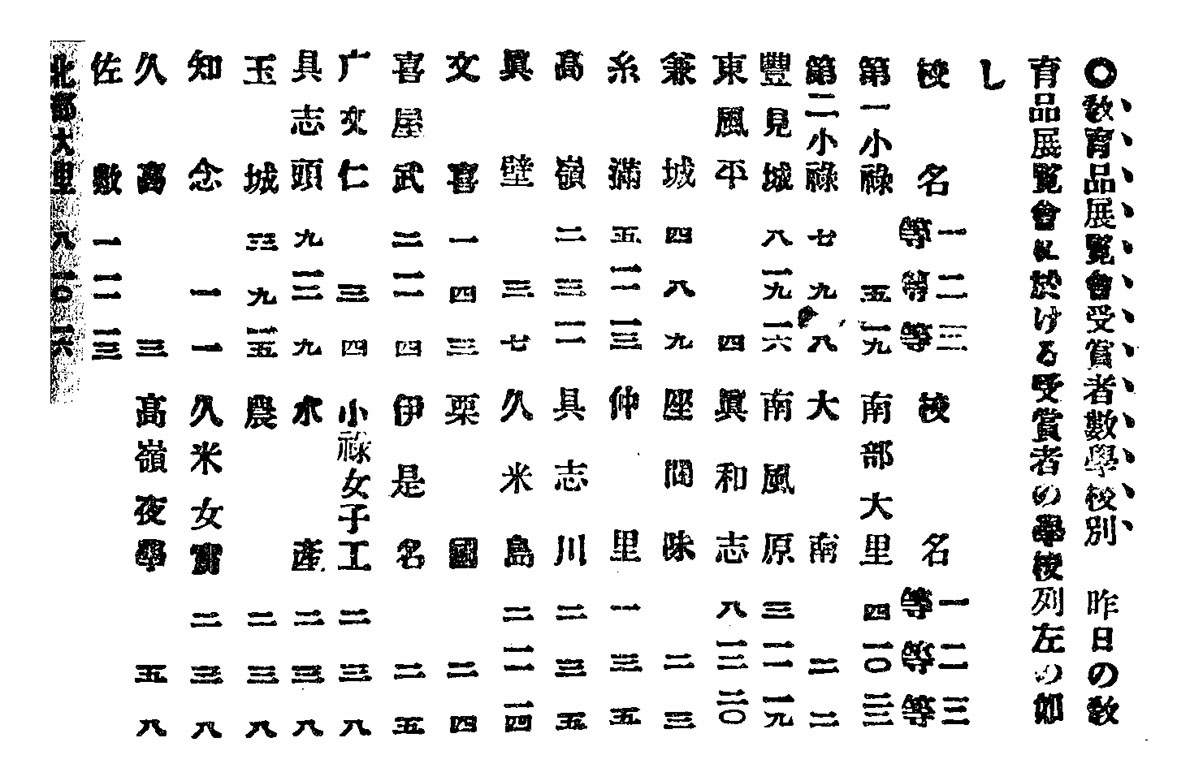 ◯敎育品展覽會受賞者數學校別　昨日の敎
育品展覽會に於ける受賞者の學校列左の如
し
校名 一等 二等 三等 校名 一等 二等 三等
第一小祿 五 一九 南部大里 四 一〇 二三
第二小祿 七 九 八 大南 二 二
豐見城 八 一九 一六 南風原 三 一一 一九
東風平 四 眞和志 八 一三 二〇
兼城 四 八 九 座間味 二 三
糸滿 五 一一 一三 仲里 一 三 五
高嶺 二 三 一一 具志川 二 三 五
眞壁 三 七 久米島 二 一一 一四
文喜 一 四 三 栗國 二 四
喜屋武 二 一一 四 伊是名 二 五
广文仁 三 四 小祿女子工 二 三 八
具志頭 九 一二 九 水產 二 三 八
玉城 三 九 一五 農 二 三 八
知念 一 一 久米女實 二 三 八
久高 三 高嶺夜學 五 八
佐敷 一 一二 一三
北部大里 八 一〇 一六